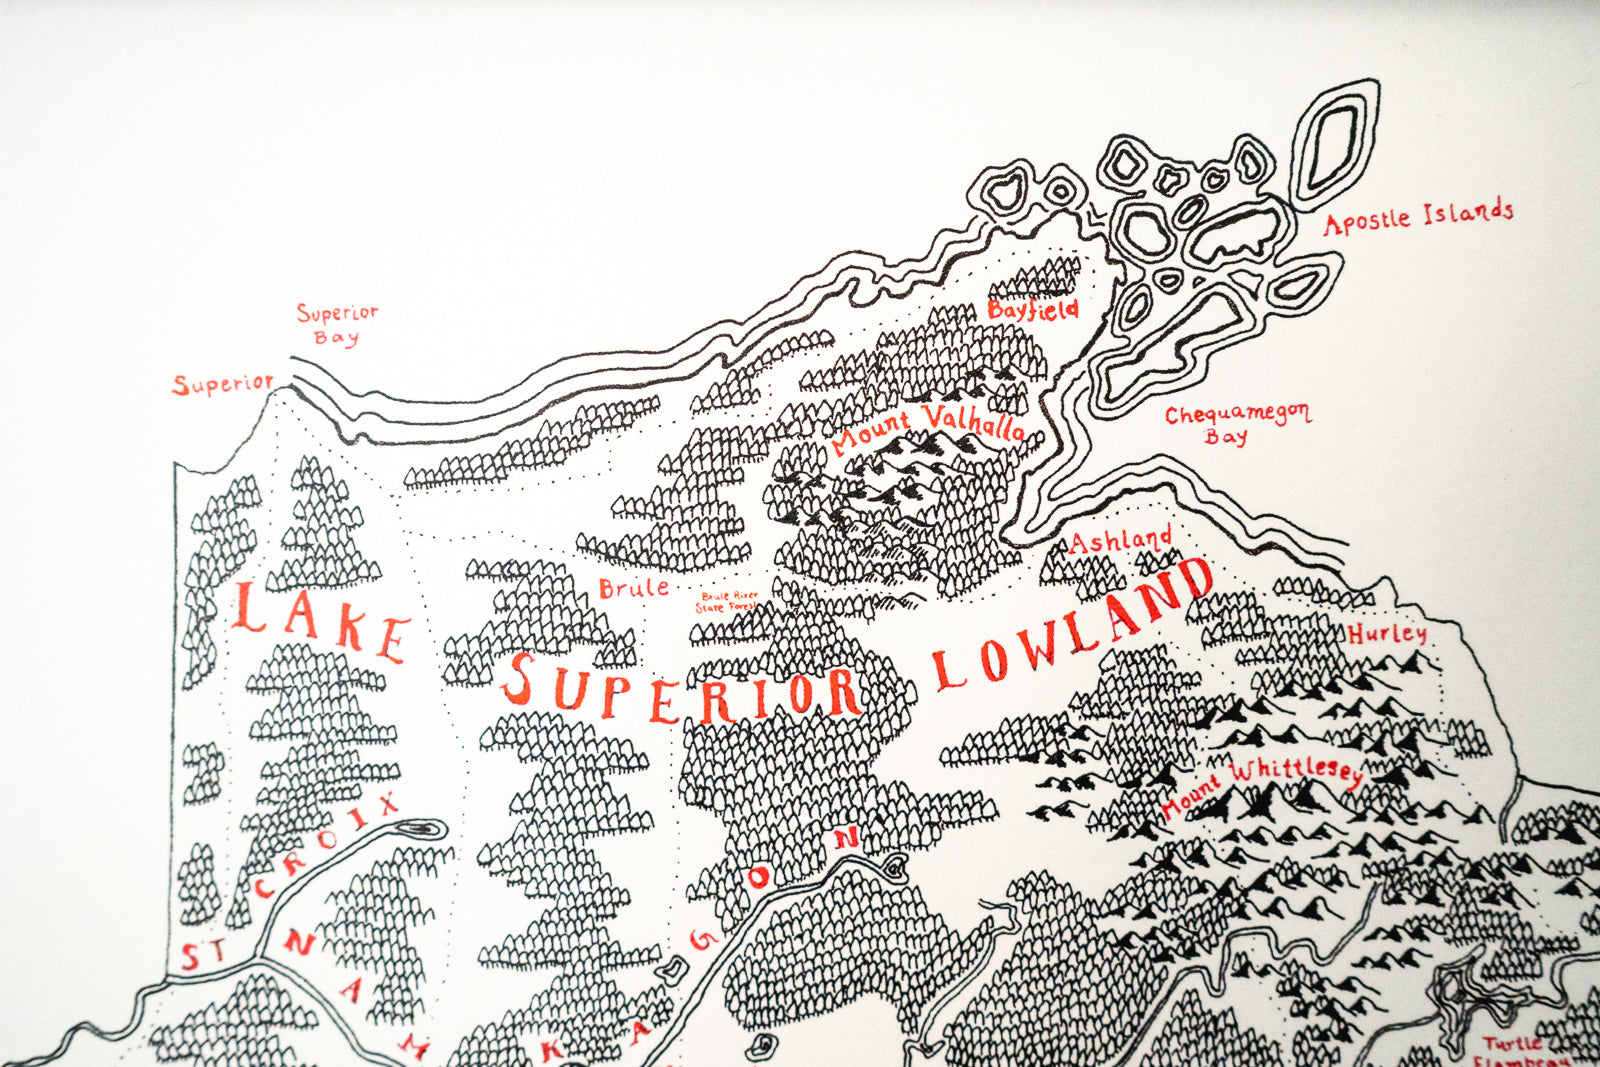 Apostle Islands
Superior
Bay
Bayfield
Superior
Chequamegon
Bay
Mount Valhalla
Ashland
Brule
Brule River
State Forest
LAKE SUPERIOR LOWLAND
Hurley
Mount Whittlesey
ST CROIX
NAMEKAGON
Turtle
Flambeau